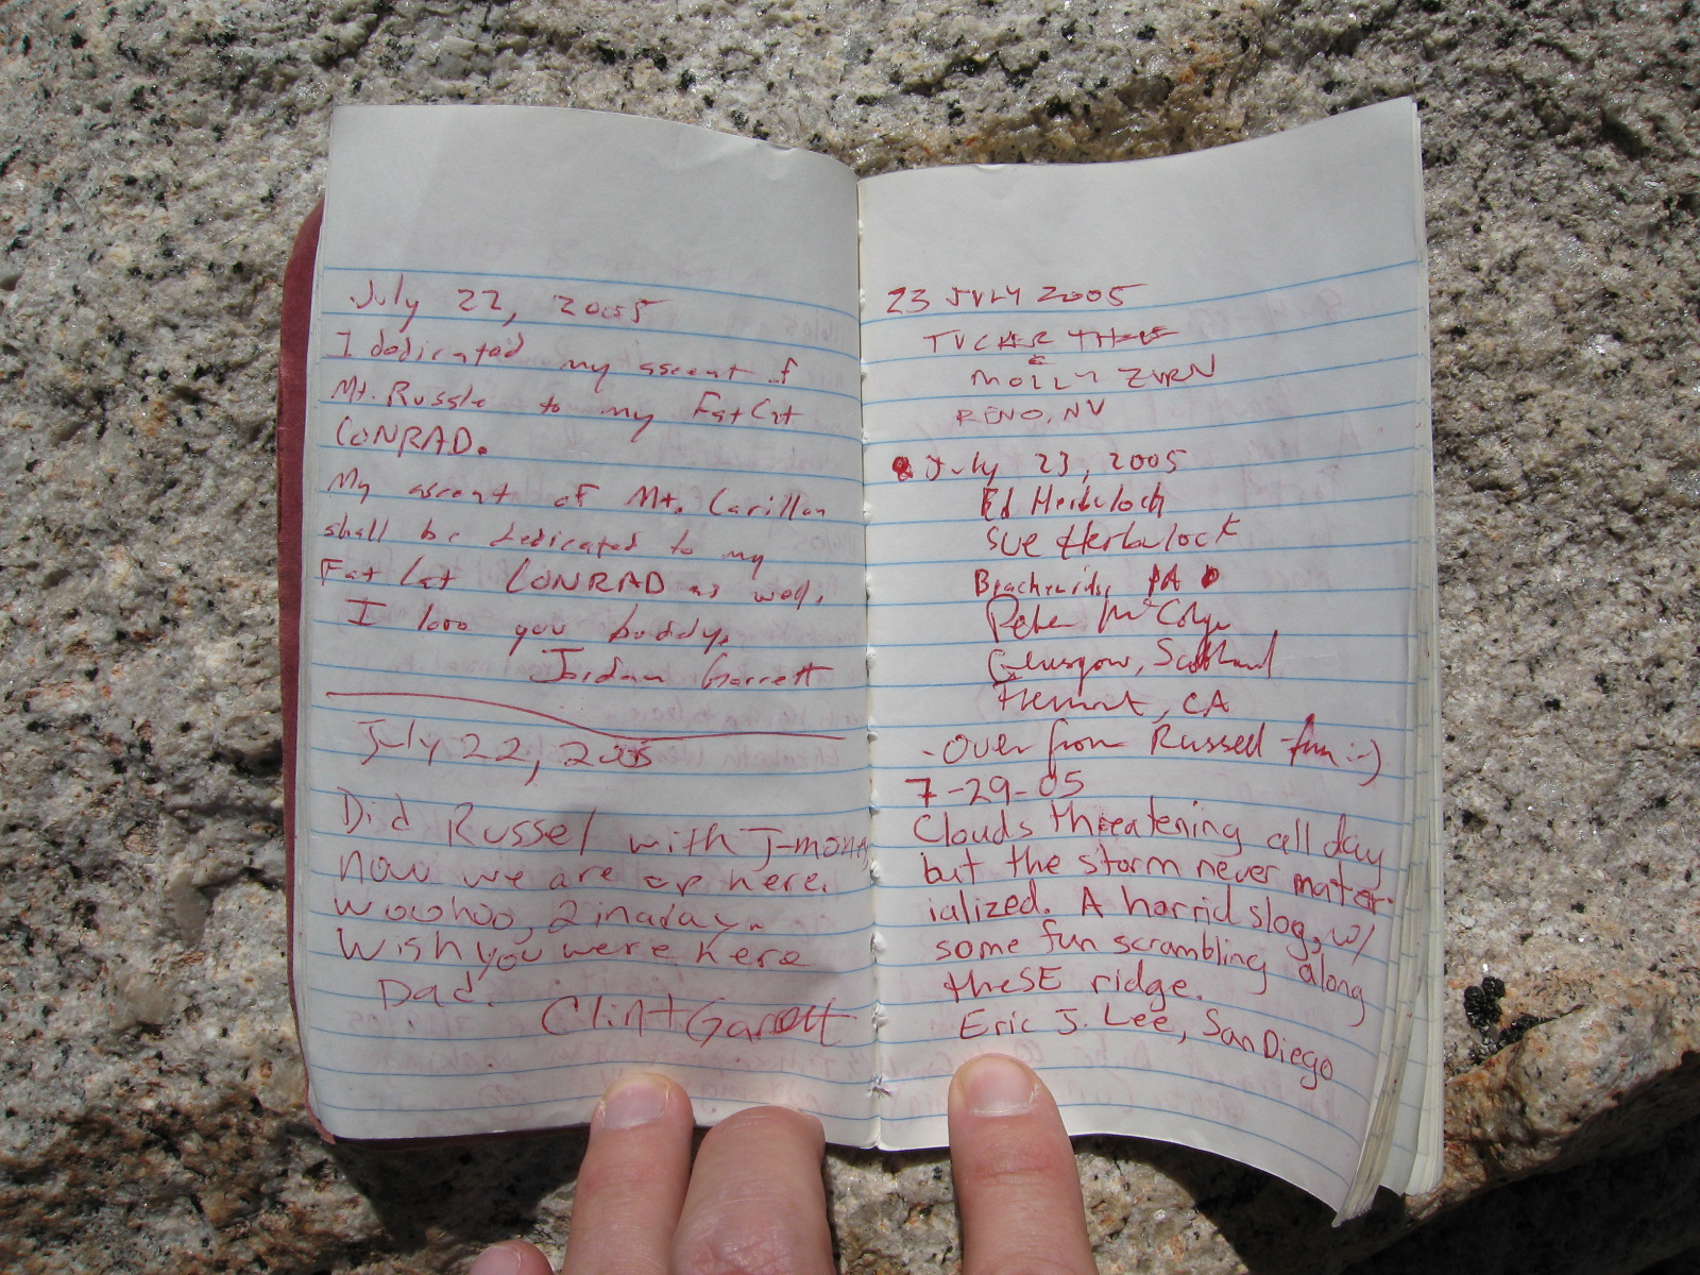 July 22, 2005
I dedicated my ascent of
Mt. Russle to my Fat Cat
CONRAD.
My ascent of Mt. Carillon
shall be dedicated to my
Fat Cat CONRAD as well,
I love you buddy,
Jordan Garrett
July 22, 2005
Did Russel with J-money
now we are up here.
Woohoo, 2 in a day.
Wish you were here
Dad.
Clint Garrett
23 JULY 2005
TUCKER
&
MOLLY ZURN
RENO, NV
July 23, 2005
Ed Herbulock
Sue Herbulock
PA
Peter
Glasgow, Scotland
Hemet, CA
- Over from Russell - fun :-)
7-29-05
Clouds threatening all day
but the storm never mater-
ialized. A horrid slog, w/
some fun scrambling along
the SE ridge.
Eric J. Lee, San Diego